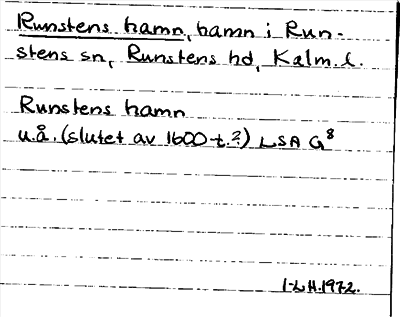 Runstens hamn, hamn i Run-
stens sn, Runstens hd, Kalm. l.
Runstens hamn
u.å. (slutet av 1600-t.?) LSA G8
I-L H. 1972.